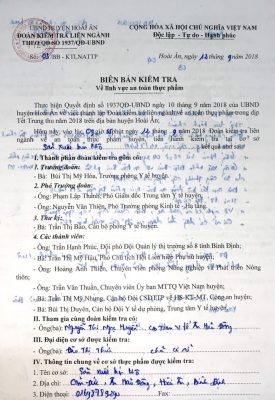 UBND HUYỆN HOÀI ÂN
ĐOÀN KIỂM TRA LIÊN NGÀNH
THEO QĐ SỐ 1937/QĐ-UBND
CỘNG HÒA XÃ HỘI CHỦ NGHĨA VIỆT NAM
Độc lập - Tự do - Hạnh phúc
/BB - KTLNATTP
Hoài Ân, ngày 12 tháng 9 năm 2018
BIÊN BẢN KIỂM TRA
Về lĩnh vực an toàn thực phẩm
Thực hiện Quyết định số 1937/QĐ-UBND ngày 10 tháng 9 năm 2018 của UBND
huyện Hoài Ân về việc thành lập Đoàn kiểm tra liên ngành về an toàn thực phẩm trong dịp
Tết Trung thu năm 2018 trên địa bàn huyện Hoài Ân.
Hôm nay, vào lúc giờ phút ngày 12 tháng 9 năm 2018 Đoàn kiểm tra liên
ngành về an toàn thực phẩm huyện, tiến hành kiểm tra tại cơ sở
Sản xuất kết quả như sau:
I. Thành phần đoàn kiểm tra gồm có:
1. Trưởng đoàn:
- Bà: Bùi Thị Mỹ Hóa, Trưởng phòng Y tế huyện.
2. Phó Trưởng đoàn:
- Ông: Phạm Lập Thành, Phó Giám đốc Trung tâm Y tế huyện.
- Ông: Nguyễn Văn Thiên, Phó Trưởng Phòng Kinh tế - Hạ tầng.
3. Thư ký:
- Bà: Trần Thị Bảo, Cán bộ phòng Y tế huyện.
4. Các thành viên:
- Ông: Trần Hạnh Phúc, Đội phó Đội Quản lý thị trường số 8 tỉnh Bình Định;
- Bà: Trần Thị Mỹ Hậu, Phó Chủ tịch Hội Liên hiệp Phụ nữ huyện;
- Ông: Hoàng Anh Thiện, Chuyên viên phòng Nông nghiệp và Phát triển Nông
thôn;
- Ông: Trần Văn Thuấn, Chuyên viên Ủy ban MTTQ Việt Nam huyện;
- Bà: Trần Thị Mỹ Nhung, Cán bộ Đội CSĐTTP về HS-KT-MT, Công an huyện;
- Bà: Đặng Thị Duy, Cán bộ Khoa Y tế dự phòng, Trung tâm Y tế huyện.
II. Tham gia cùng đoàn kiểm tra có:
- Ông(bà): Nguyễn Thị
III. Đại diện cơ sở được kiểm tra:
- Ông(bà): Thị chủ cơ sở
IV. Thông tin chung về cơ sở được kiểm tra gồm có:
1. Tên cơ sở: Sản xuất
2. Địa chỉ: Hoài Ân, Bình Định
3. Điện thoại: